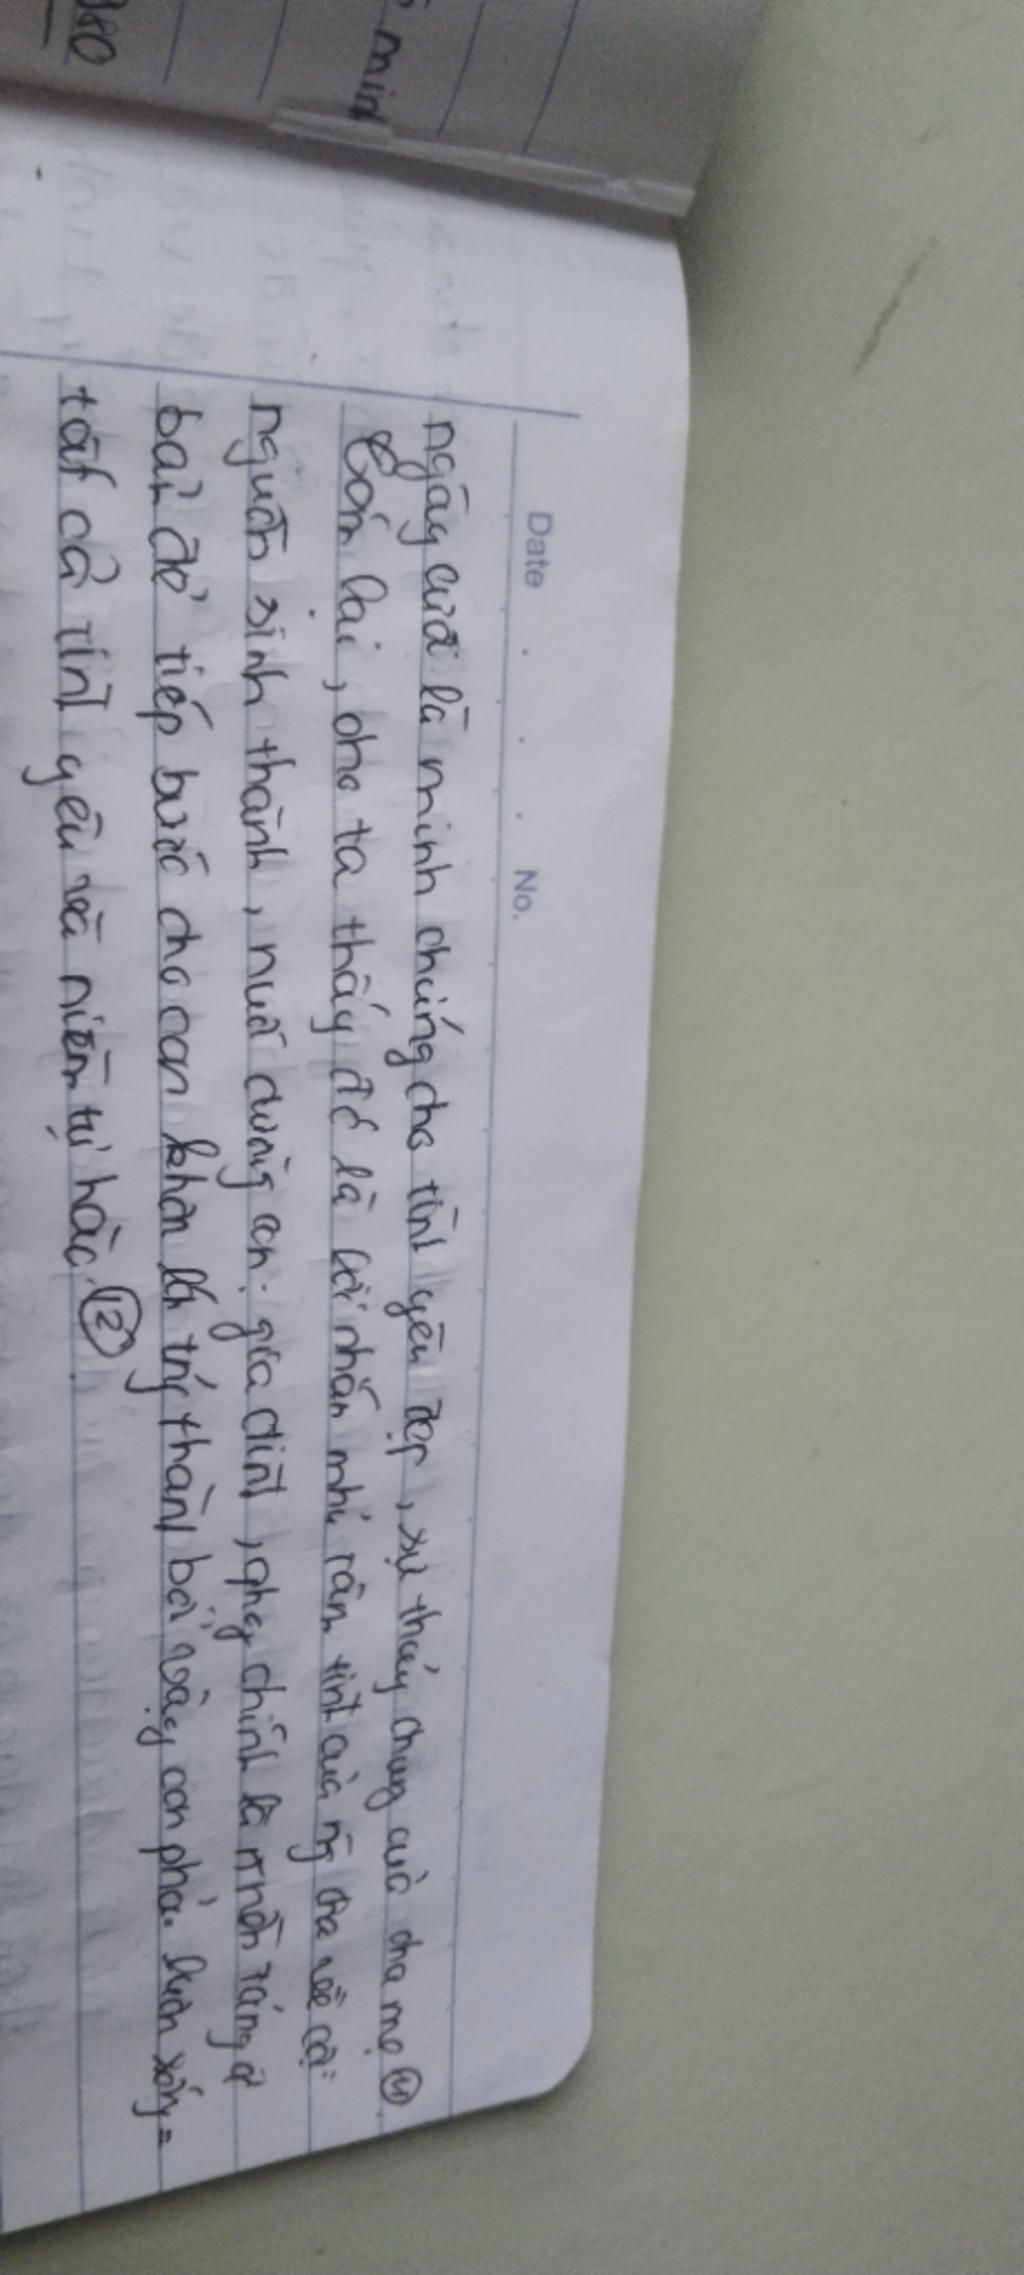 980
min
Date . . . No.
ngày cưới là minh chứng cho tình yêu đẹp, sự thủy chung của cha mẹ (11)
tóm lại, cho ta thấy đó là lời nhắn nhủ tâm tình của ng cha về cội
nguồn sinh thành, nuôi dưỡng con. gia đình, qhg chính là nền tảng cơ
bản để tiếp bước cho con khôn lớn trg thành bởi vậy con phải luôn sống =
tất cả tình yêu và niềm tự hào. (12)